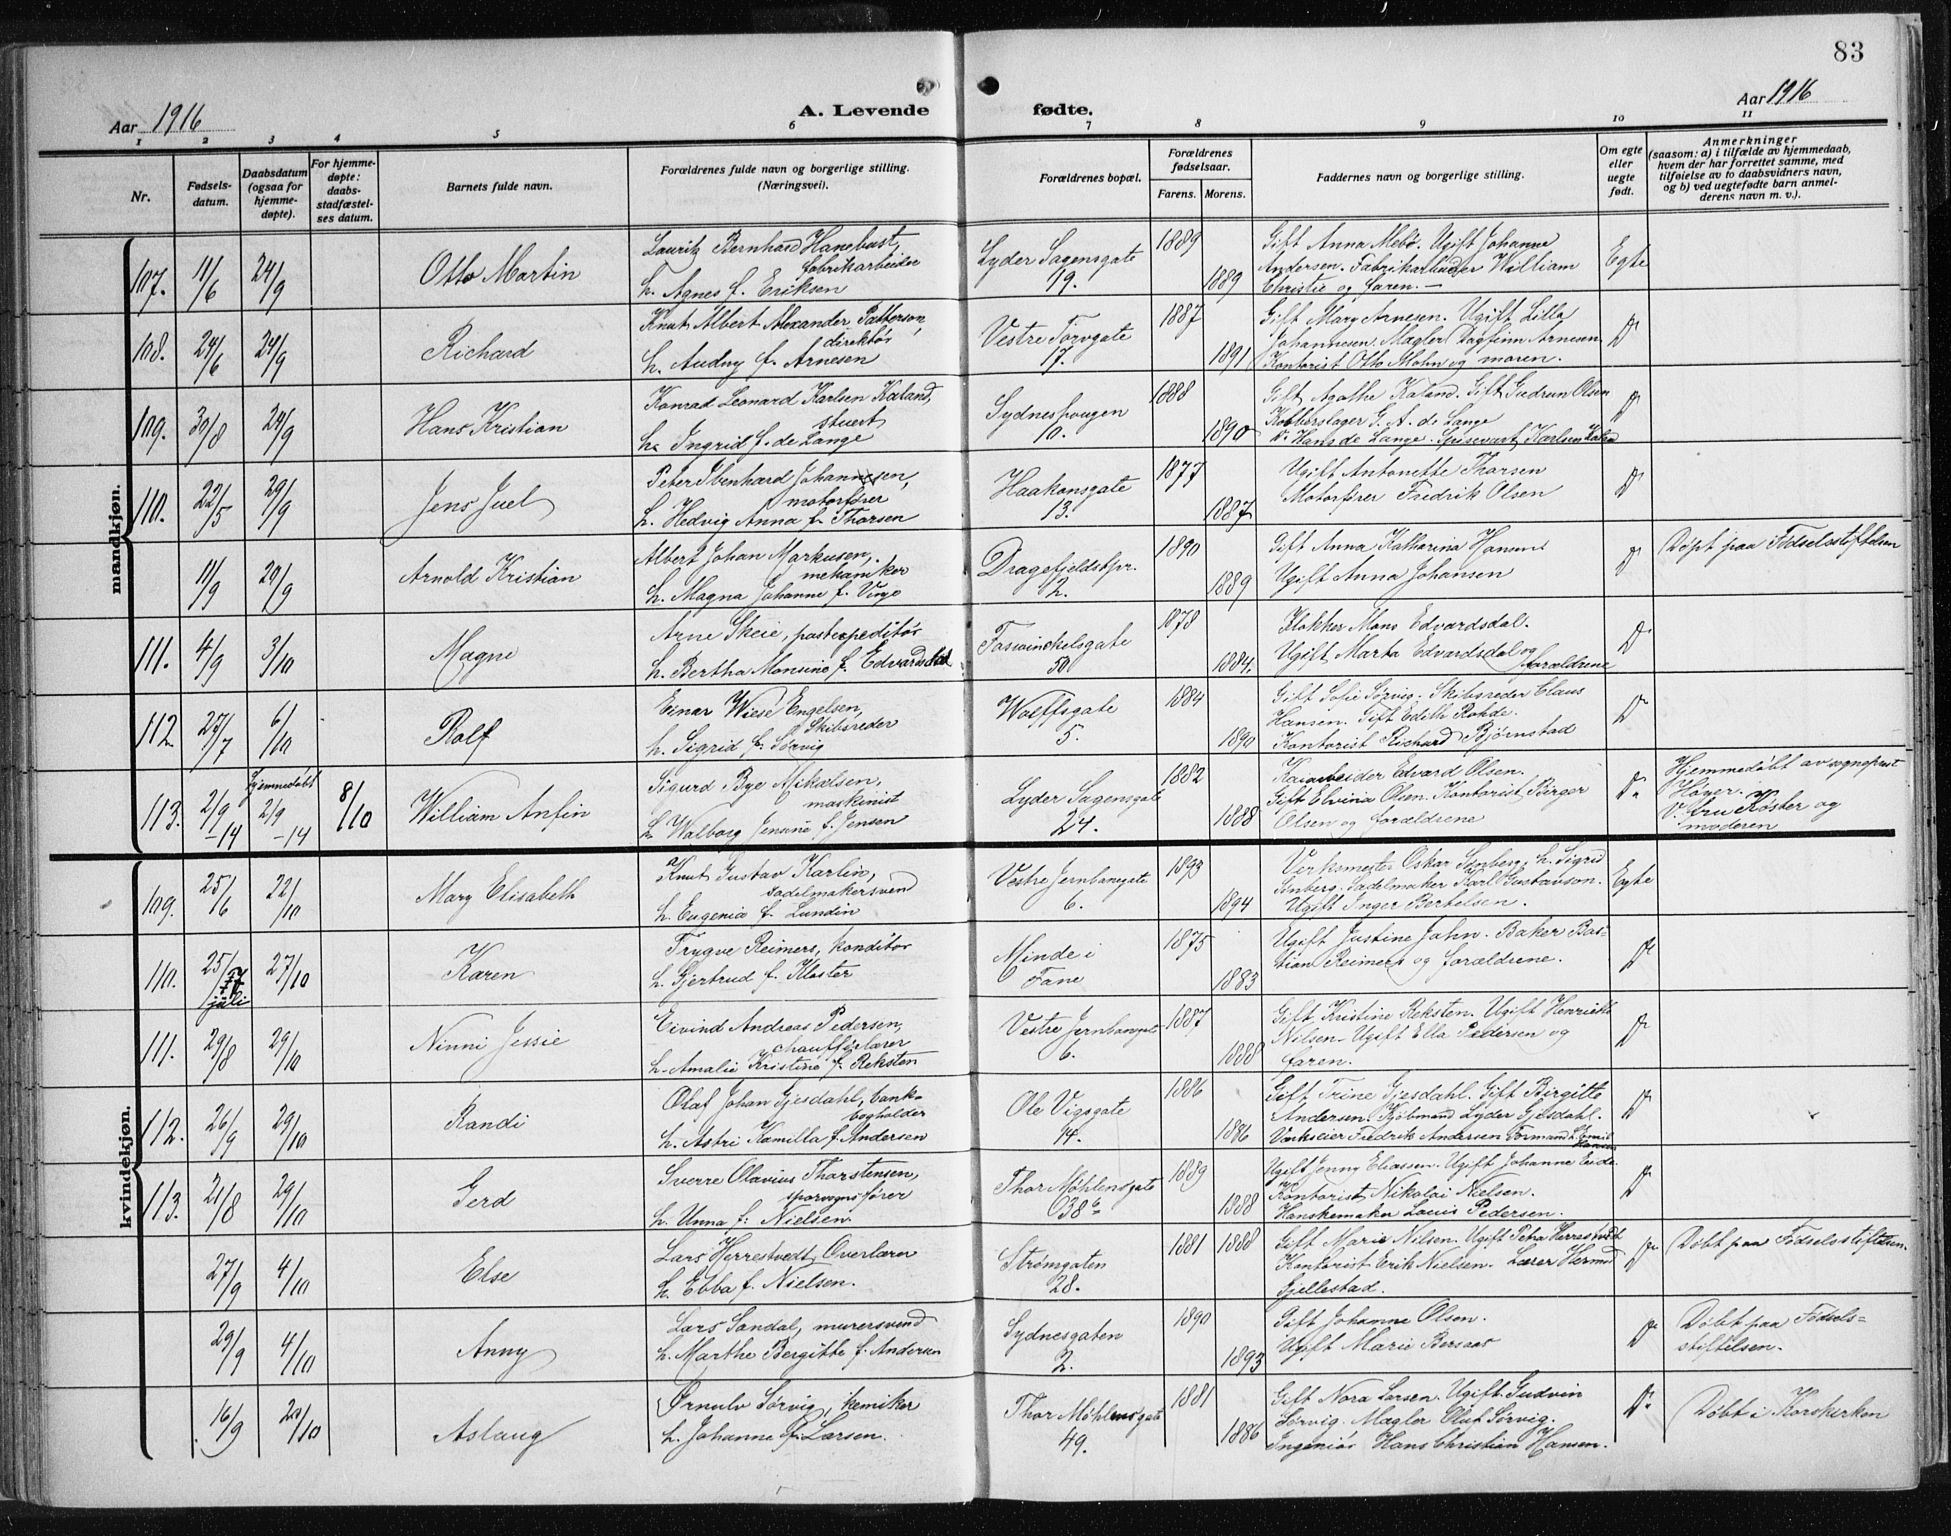 83
Aar 1916
A. Levende fødte.
Aar 1916
1 2 3 4 5 6 7 8 9 10 11
Nr.
Fødsels-
datum.
Daabsdatum
(ogsaa for
hjemme-
døpte).
For hjemme-
døpte:
daabs-
stadfæstel-
ses datum.
Barnets fulde navn.
Forældrenes fulde navn og borgerlige stilling.
(Næringsvei).
Forældrenes bopæl.
Forældrenes
fødselsaar.
Farens. Morens.
Faddernes navn og borgerlige stilling.
Om egte
eller
uegte
født.
Anmerkninger
(saasom: a) i tilfælde av hjemmedaab,
hvem der har forrettet samme, med
tilføielse av to daabsvidners navn,
og b) ved uegtefødte barn anmel-
derens navn m. v.).
mandkjøn.
107. 11/6 24/9 Otto Martin
Lauritz Bernhard Hanebust,
fabrikarbeider
h. Agnes f. Eriksen
Lyder Sagensgate
19.
1889 1889
Gift Anna Mebö. Ugift Johanne
Andersen. Fabrikarbeider William
Christie og faren. —
Egte
108. 24/6 24/9 Richard
Knut Albert Alexander Patterson,
direktør
h. Audny f. Arnesen
Vestre Torvgate
17.
1887 1891
Gift Mary Arnesen. Ugift Lilla
Johannesen. Mægler Dagfinn Arnesen
Kontorist Otto Mohn og moren.
Do
109. 30/8 24/9 Hans Kristian
Konrad Leonard Karlsen Kaland,
stuert
h. Ingrid f. de Lange
Sydneshaugen
10.
1888 1890
Gift Agathe Kaland. Gift Gudrun Olsen
Kobberslager G. A. de Lange
Do Hans de Lange. Spisevert Karlsen
Do
110. 22/5 29/9 Jens Juel
Peter Ibenhard Johannesen,
motorfører
h. Hedvig Anna f. Thorsen
Haakonsgate
13.
1877 1887
Ugift Antonette Thorsen
Motorfører Fredrik Olsen
Do
11/9 29/9 Arnold Kristian
Albert Johan Markusen,
mekaniker
h. Magna Johanne f. Vinje
Dragefjeldstpr.
2.
1890 1889
Gift Anna Katharina Hansen
Ugift Anna Johansen
Do
Døpt paa Fødselsstiftelsen
111. 4/9 3/10 Magne
Arne Skeie, postexpeditør
h. Bertha Monsine f. Edvardsdal
Fosswinckelsgate
50
1878 1884.
Klokker Mons Edvardsdal.
Ugift Marta Edvardsdal og
forældrene
Do
112. 27/7 6/10 Rolf
Einar Wiese Engelsen,
Skibsreder
h. Sigrid f. Sørvig
Wolffsgate
5.
1884 1890
Gift Sofie Sørvig. Skibsreder Claus
Hansen. Gift Edith Rohde.
Kontorist Richard Bjørnstad
Do
113. 2/9 -14 hjemmedøbt 2/9 -14 8/10 William Anfin
Sigurd Bye Mikalsen,
maskinist
h. Walborg Jensine f. Jensen
Lyder Sagensgate
24.
1882 1888
Kaiarbeider Edvard Olsen.
Gift Elvina Olsen. Kontorist Birger
Olsen og forældrene
Do
Hjemmedøbt av sogneprest
Høyer.
V. fru Køster og
moderen
kvindekjøn.
109. 25/6 22/10 Mary Elisabeth
Knut Gustav Karlin,
sadelmakersvend
h. Eugenia f. Lundin
Vestre Jernbanegate
6.
1893 1894
Verksmester Oskar Sinberg, h. Sigrid
Sinberg. Sadelmaker Karl Gustavson.
Ugift Inger Bertelsen.
Egte
110. 25/7 juli 27/10 Karen
Trygve Reimers, konditor
h. Gjertrud f. Kloster
Minde i
Fane
1875 1883
Ugift Justine Jahn. Baker Bas-
tian Reimers og forældrene.
Do
111. 29/8 29/10 Ninni Jessie
Eivind Andreas Pedersen,
chaufførlærer
h. Amalie Kristine f. Reksten
Vestre Jernbanegt
6.
1887 1888
Gift Kristine Reksten. Ugift Henriette
Nilsen. Ugift Ella Pedersen og
faren.
Do
112. 26/9 29/10 Randi
Olaf Johan Gjesdahl, bank-
bogholder
h. Astri Kamilla f. Andersen
Ole Vigsgate
14.
1886 1886
Gift Trine Gjesdahl. Gift Birgitte
Andersen. Kjøbmand Lyder Gjesdahl.
Værkseier Fredrik Andersen Formand Emil
Hansen
Do
113. 21/8 29/10 Gerd
Sverre Olavius Thorstensen,
sporvognsfører
h. Unna f. Nielsen
Thor Møhlensgate
38b
1889 1888
Ugift Jenny Eliassen. Ugift Johanne
Kontorist Nikolai Nielsen.
Hanskemaker Louis Pedersen.
Do
27/9 4/10 Else
Lars Herrestvedt, Overlærer
h. Ebba f. Nielsen.
Strømgaten
28.
1881 1888
Gift Marie Nilsen. Ugift Petra Herrestvedt
Kontorist Erik Nielsen. Lærer
Gjellestad.
Do
Døbt paa Fødselsstiftelsen.
29/9 4/10 Anny
Lars Sandal, murersvend
h. Marthe Bergitte f. Andersen
Sydnesgaten
2.
1890 1893
Gift Johanne Olsen.
Ugift Marie
Do
Døbt paa Fødsels-
stiftelsen.
16/9 20/10 Aslaug
Ørnulv Sørvig, kemiker
h. Johanne f. Larsen.
Thor Møhlensgate
49.
1881 1886
Gift Nora Larsen. Ugift Gudrun
Sørvig. Mægler Olaf Sørvig.
Ingeniør Hans Christian Hansen.
Do
Døbt i Korskirken